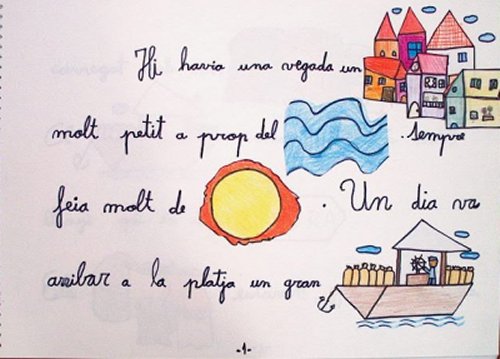 Hi havia una vegada un
molt petit a prop del . Sempre
feia molt de . Un dia va
arribar a la platja un gran
-1-